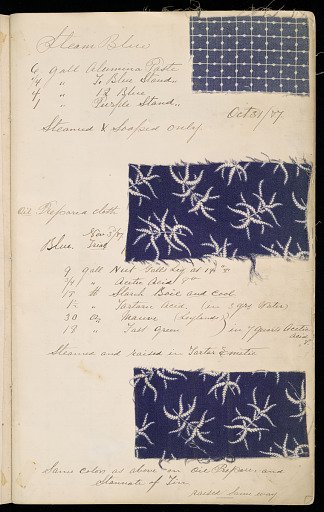 Steam Blue
6 gall Alumina Paste
" To Blue Stand.
4 " 12 Blue.
1 " Purple Stand.
Oct 31/87
Steamed & Soaped only.
Oil Prepared cloth
Nov 8/87
Blue. Tried
9 gall Nut Galls Liq at 14°
3/4 " Acetic Acid 9°
17 lb Starch Boil and Cool
" Tartaric Acid. (in 3 qrs Water)
30 oz Mauve (Leylands)
18 " Fast Green in 7 quarts Acetic
acid
Steamed and raised in Tartar Emetic
Same colors as above on Oil Prepare and
Stannate of Tin
raised same way